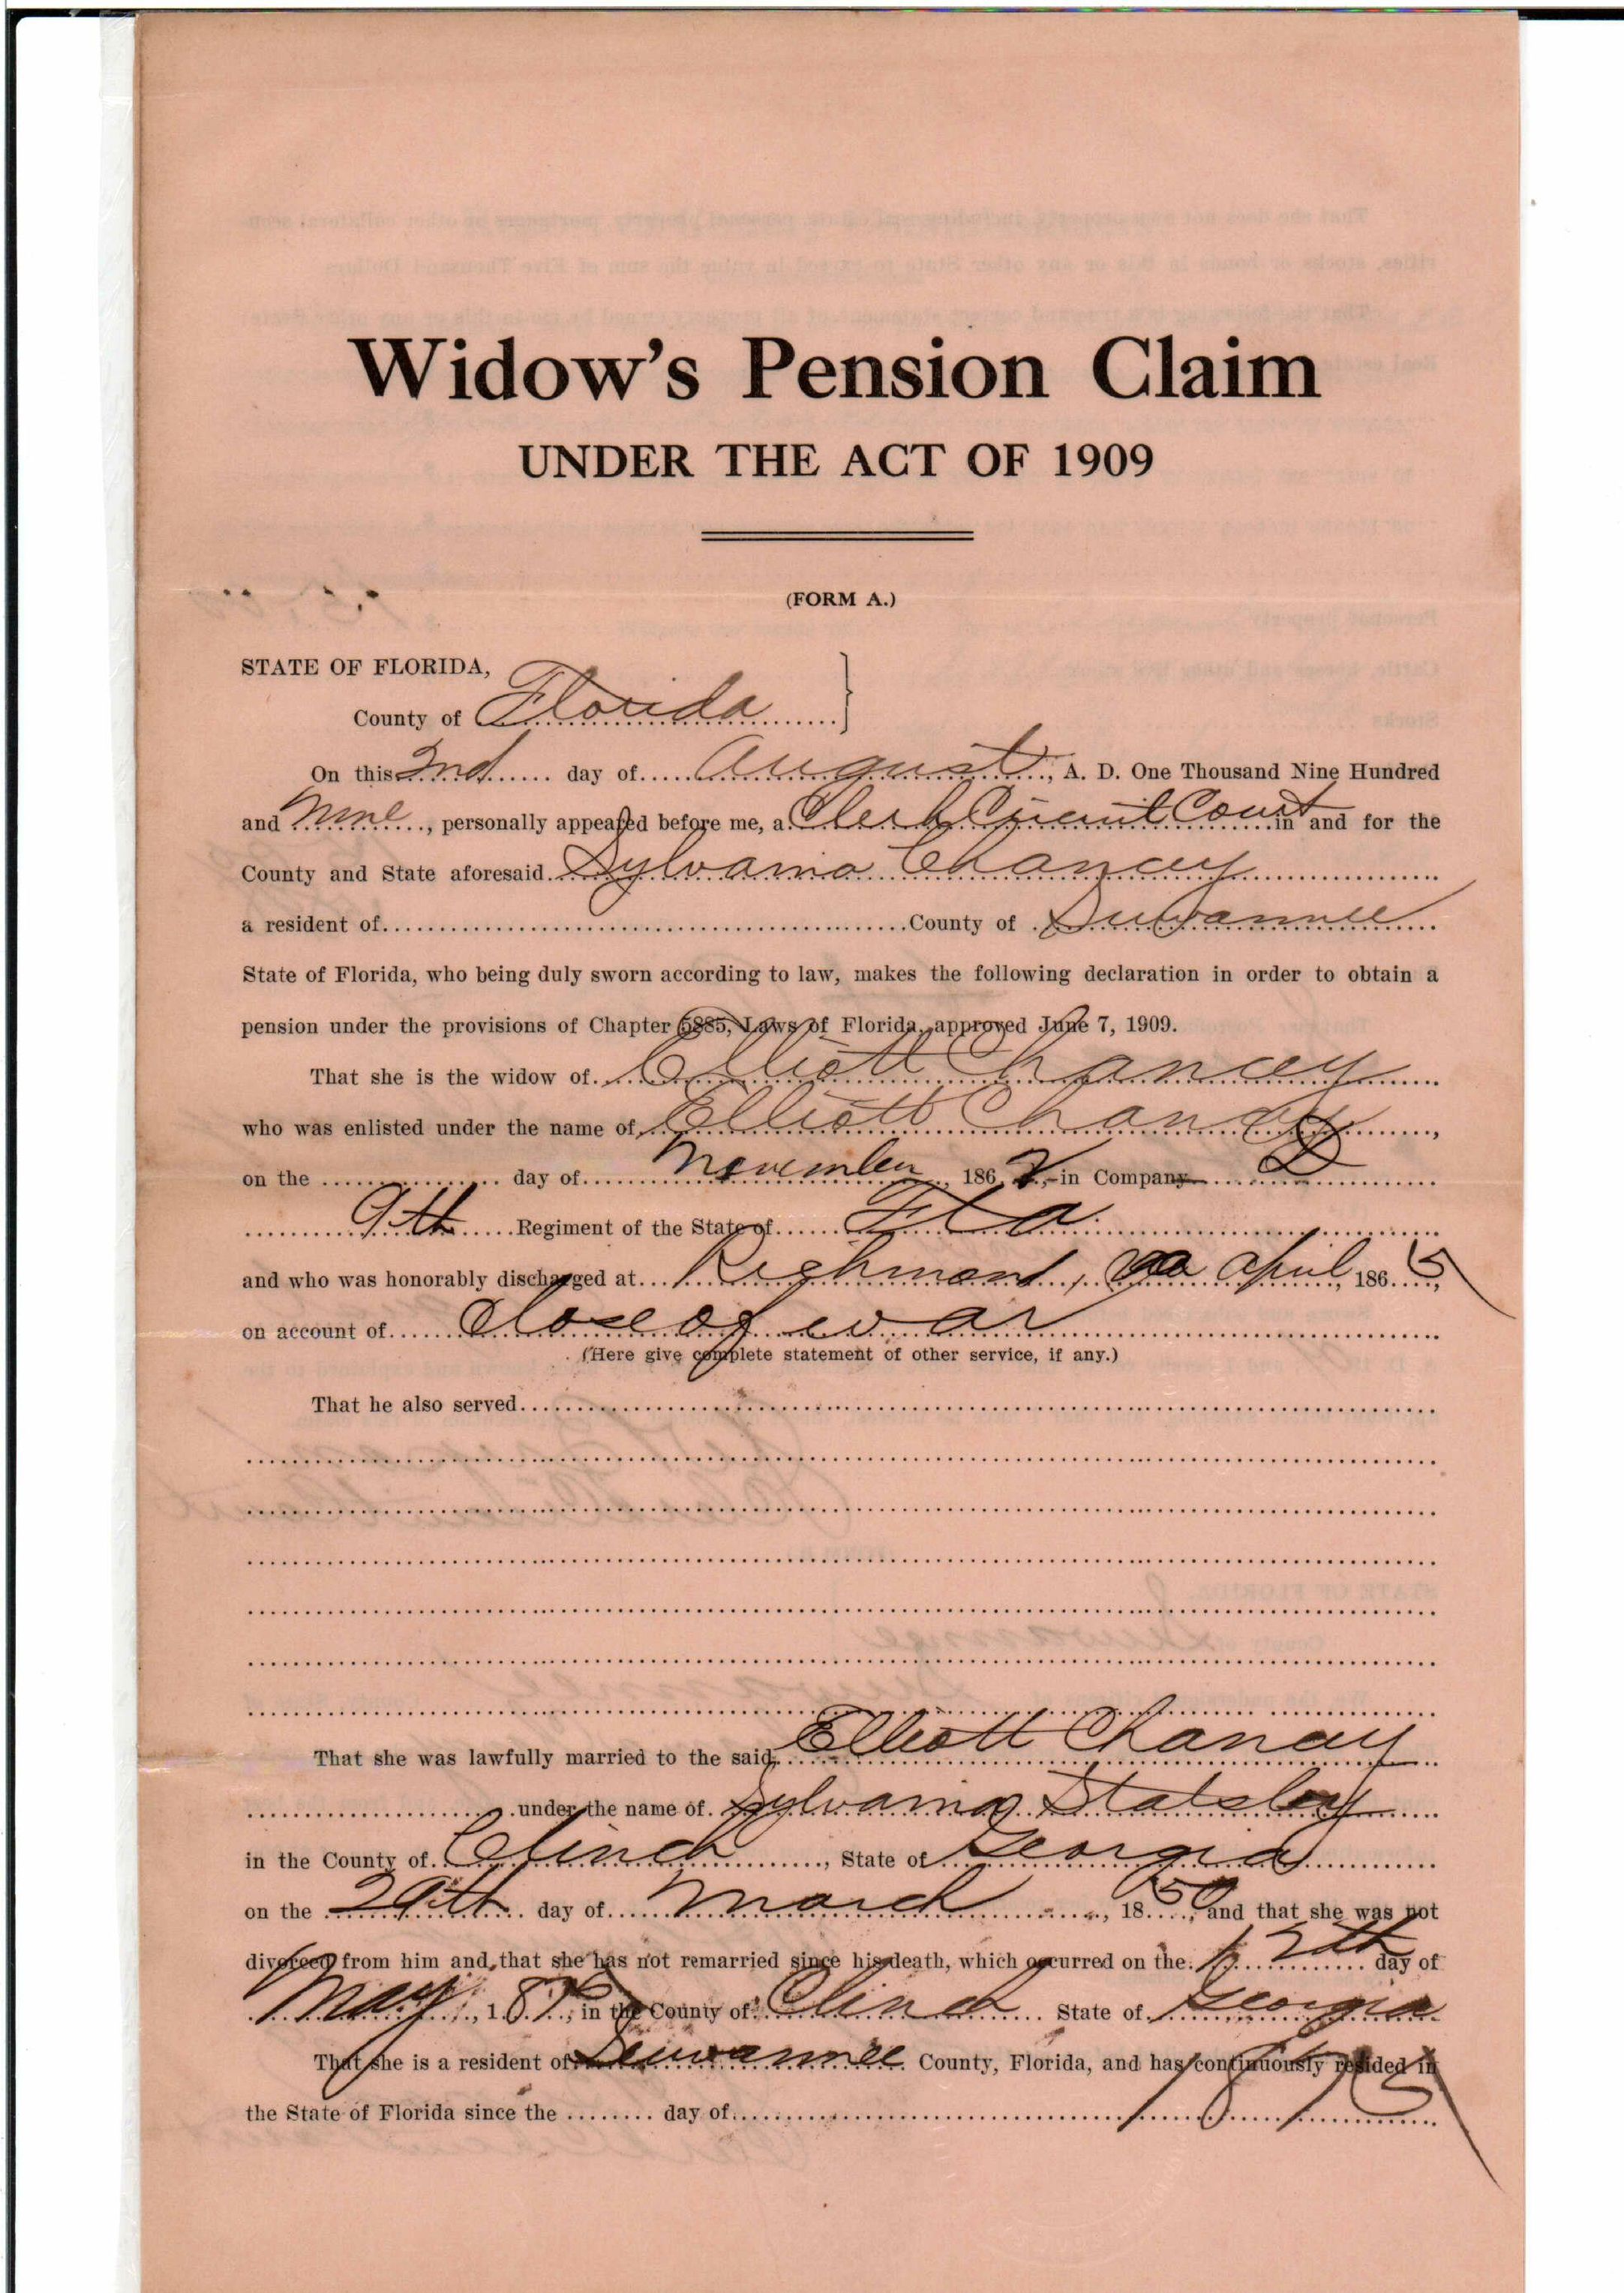 Widow's Pension Claim
UNDER THE ACT OF 1909
(FORM A.)
STATE OF FLORIDA,
County of Florida
On this 2nd day of August, A. D. One Thousand Nine Hundred
and Nine, personally appeared before me, a Clerk Circuit Court in and for the
County and State aforesaid Sylvania Chancey
a resident of County of Suwannee
State of Florida, who being duly sworn according to law, makes the following declaration in order to obtain a
pension under the provisions of Chapter 5885, Laws of Florida, approved June 7, 1909.
That she is the widow of Elliott Chancey
who was enlisted under the name of Elliott Chancey,
on the day of November, 1862, in Company D
9th Regiment of the State of Fla.
and who was honorably discharged at Righmond, Va April, 1865,
on account of Close of war
(Here give complete statement of other service, if any.)
That he also served
That she was lawfully married to the said Elliott Chancy
under the name of Sylvania
in the County of Clinch, State of Georgia
on the 29th day of March, 1850, and that she was not
divorced from him and that she has not remarried since his death, which occurred on the 12th day of
May, in the County of Clinch State of Georgia
That she is a resident of Suwannee County, Florida, and has continuously resided in
the State of Florida since the day of 1875